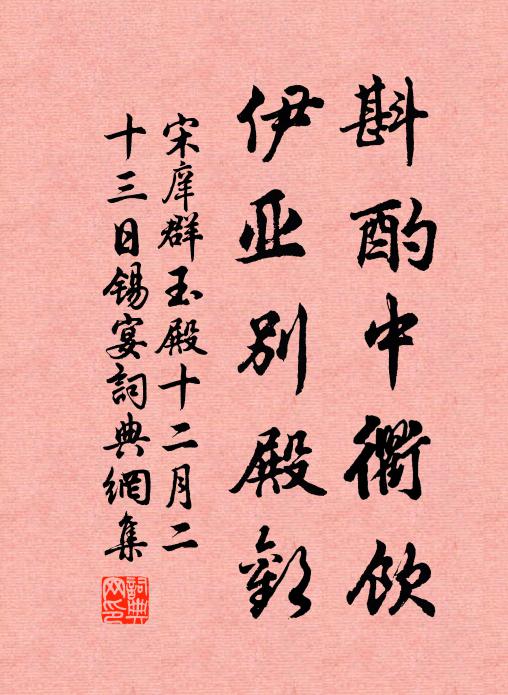 斟酌中衢飲
伊亚别殿歡
宋庠群玉殿十二月二
十三日锡宴詞典網集
詞典網印